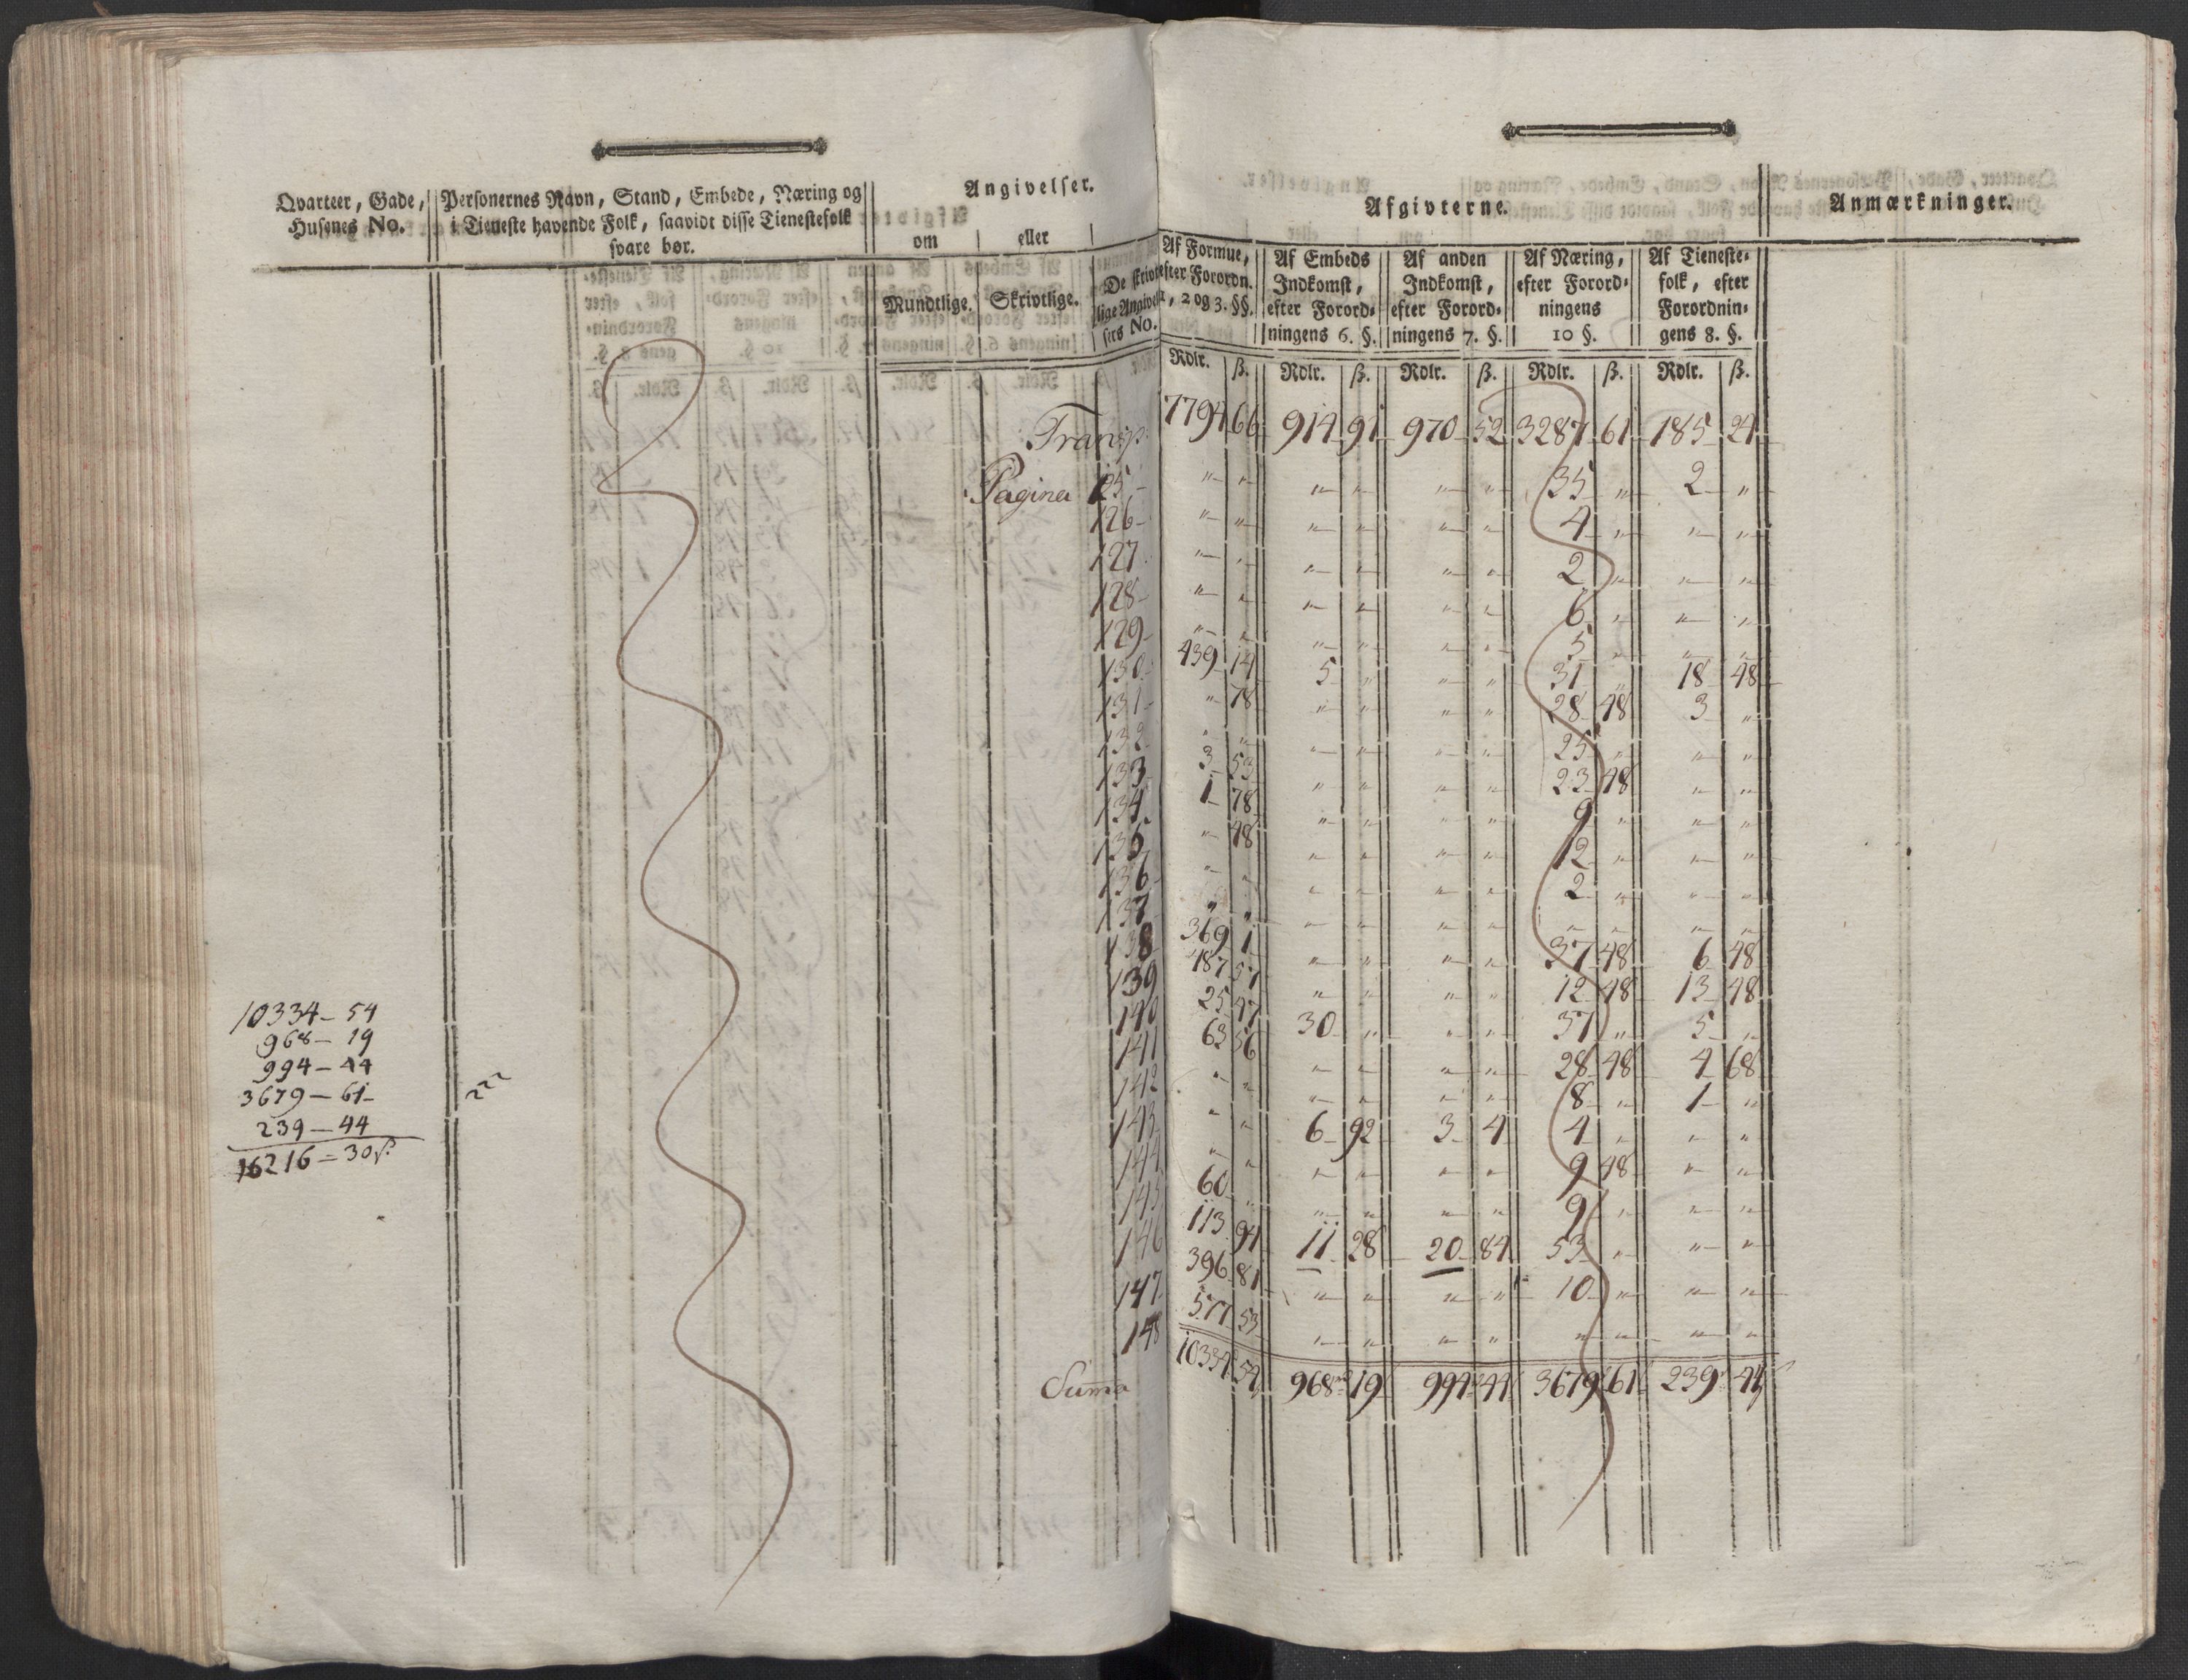 Qvarteer, Gade,
Husenes No.
Personernes Navn, Stand, Embede, Næring og
i Tieneste havende Folk, saavidt disse Tienestefolk
svare bør.
Angivelser.
om eller
Mundtlige. Skrivtlige. De skrivt-
lige Angivel-
sers No.
Afgivterne.
Af Formue,
efter Forordn.
1, 2 og 3. §§.
Af Embeds
Indkomst,
efter Forord-
ningens 6. §.
Af anden
Indkomst,
efter Forord-
ningens 7. §.
Af Næring,
efter Forord-
ningens
10 §.
Af Tieneste-
folk, efter
Forordnin-
gens 8. §.
Anmærkninger.
Rdlr. ß. Rdlr. ß. Rdlr. ß. Rdlr. ß. Rdlr. ß.
Transp. 7794 66 914 91 970 52 3287 61 185 24
Pagina 125 " " " " " " 35 " 2 "
126 " " " " " " 4 " " "
127 " " " " " " 2 " " "
128 " " " " " " 6 " " "
129 " " " " " " 5 " " "
130 439 14 5 " " " 31 " 18 48
131 " 78 " " " " 28 48 3 "
132 " " " " " " 25 " " "
133 3 53 " " " " 23 48 " "
134 1 78 " " " " 9 " " "
135 " 48 " " " " 12 " " "
136 " " " " " " 2 " " "
137 " " " " " " " " " "
138 369 1 " " " " 37 48 6 48
139 487 57 " " " " 12 48 13 48
140 25 47 30 " " " 37 " 5 "
141 63 56 " " " " 28 48 4 68
142 " " " " " " 8 " 1 "
143 " " 6 92 3 4 4 " " "
144 " " " " " " 9 48 " "
145 60 " " " " " 9 " " "
146 113 94 11 28 20 84 53 " " "
147 396 81 " " " " 10 " " "
148 577 53 " " " " " " " "
Suma 10334 54 968 19 994 44 3679 61 239 44
10334 – 54
968 – 19
994 – 44
3679 – 61
239 – 44
16216 = 30 ß.